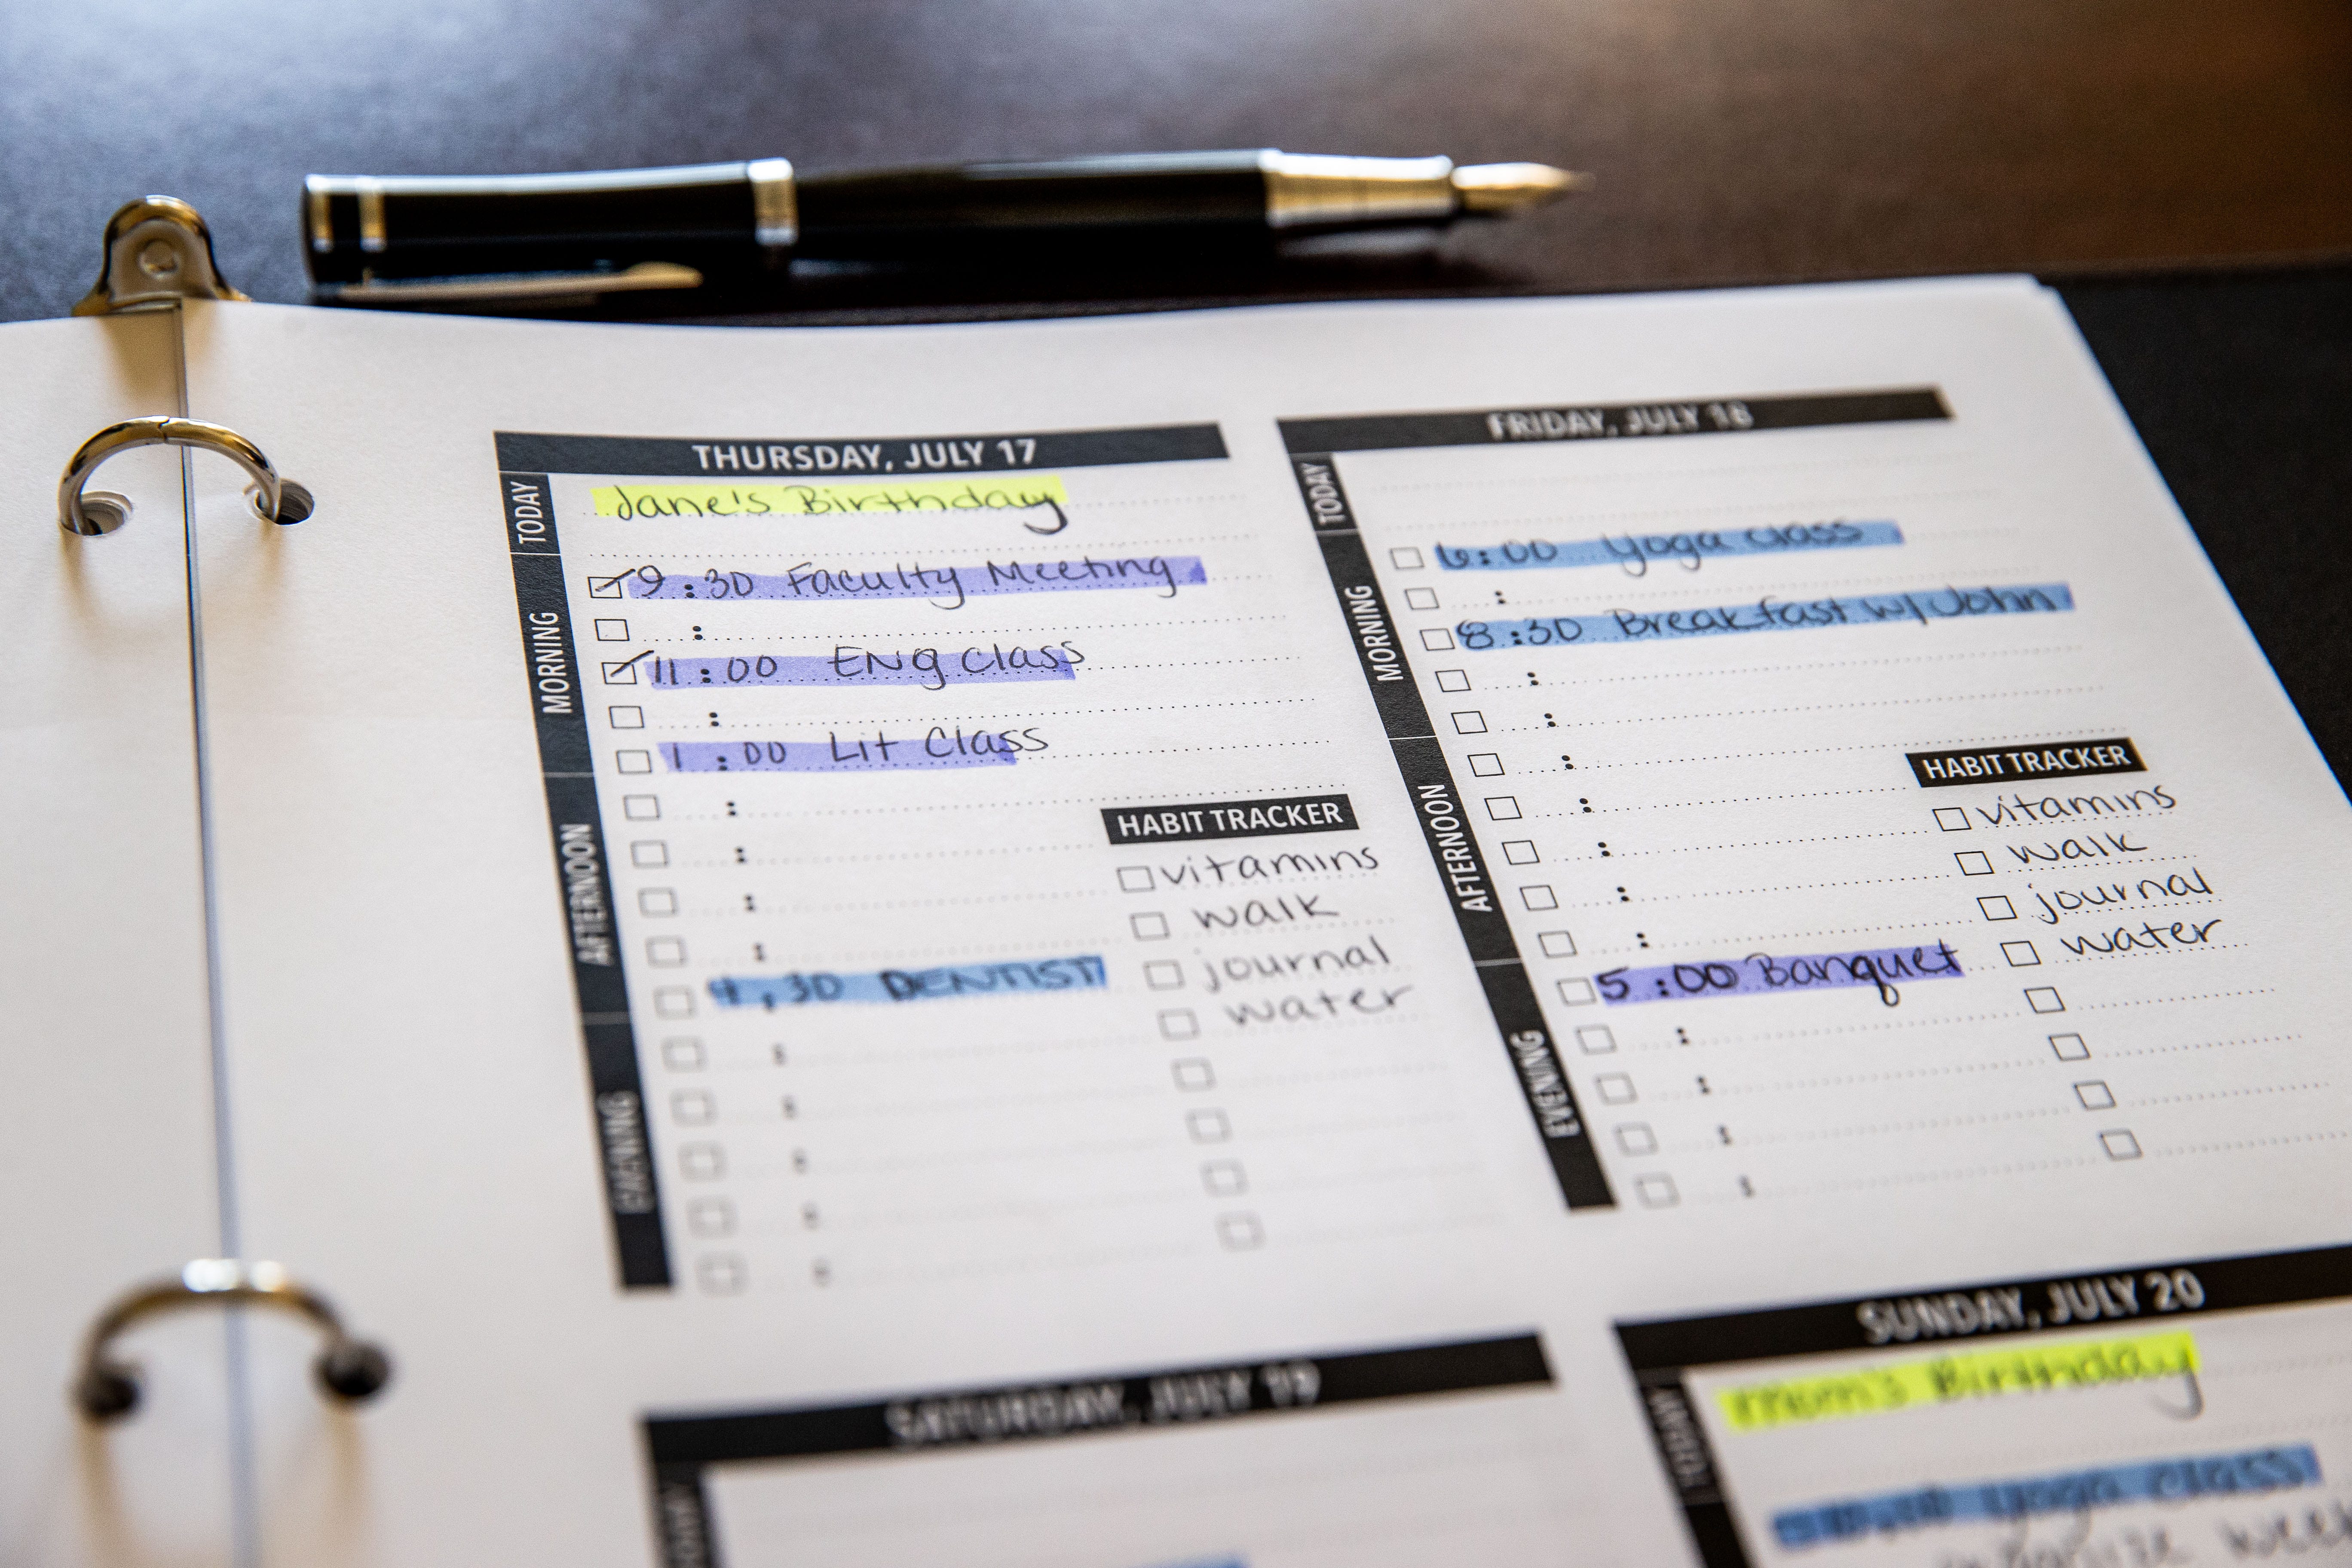 THURSDAY, JULY 17
TODAY
Jane's Birthday
MORNING
9:30 Faculty Meeting
11:00 ENG class
1:00 Lit Class
AFTERNOON
4:30 DENTIST
EVENING
HABIT TRACKER
vitamins
walk
journal
water
FRIDAY, JULY 18
TODAY
MORNING
6:00 yoga class
8:30 Breakfast w/ John
AFTERNOON
5:00 Banquet
EVENING
HABIT TRACKER
vitamins
walk
journal
water
SATURDAY, JULY 19
TODAY
SUNDAY, JULY 20
TODAY
Mom's Birthday
yoga class